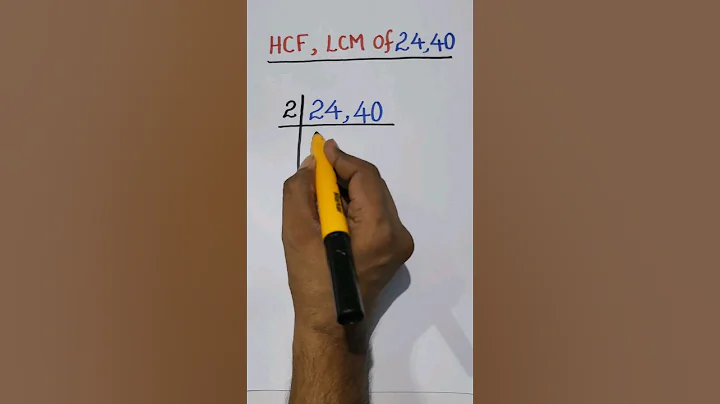 HCF, LCM Of 24,40
2 24,40